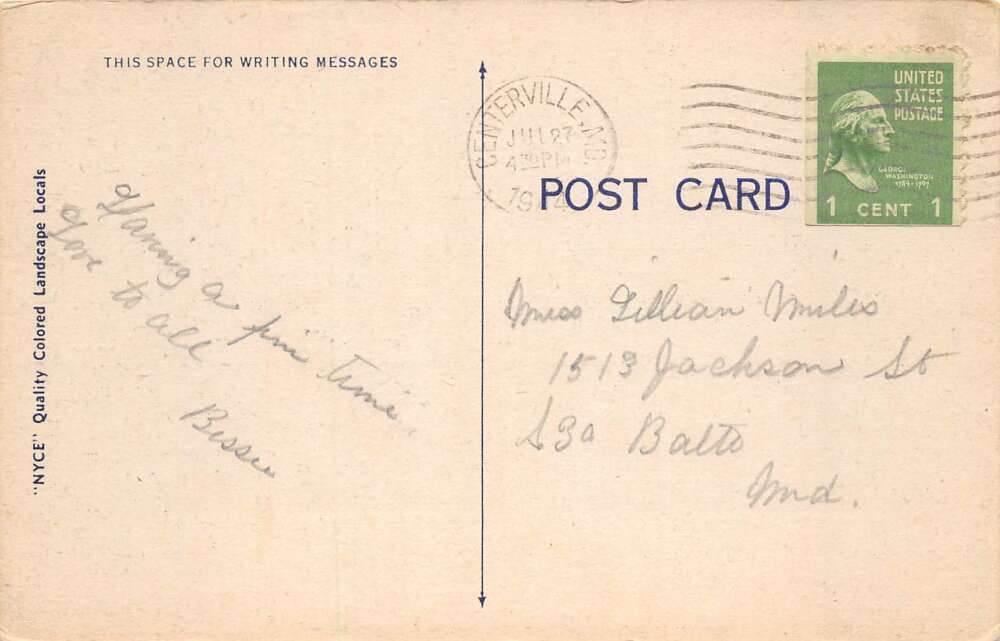 THIS SPACE FOR WRITING MESSAGES
"NYCE" Quality Colored Landscape Locals
Having a fine Time.
Love to all
Bessie
CENTERVILLE, MD
JUL 27
4 30 PM
POST CARD
UNITED
STATES
POSTAGE
GEORGE
WASHINGTON
1789-1797
1 CENT 1
Miss Lillian Miles
1513 Jackson St
Balto
Md.